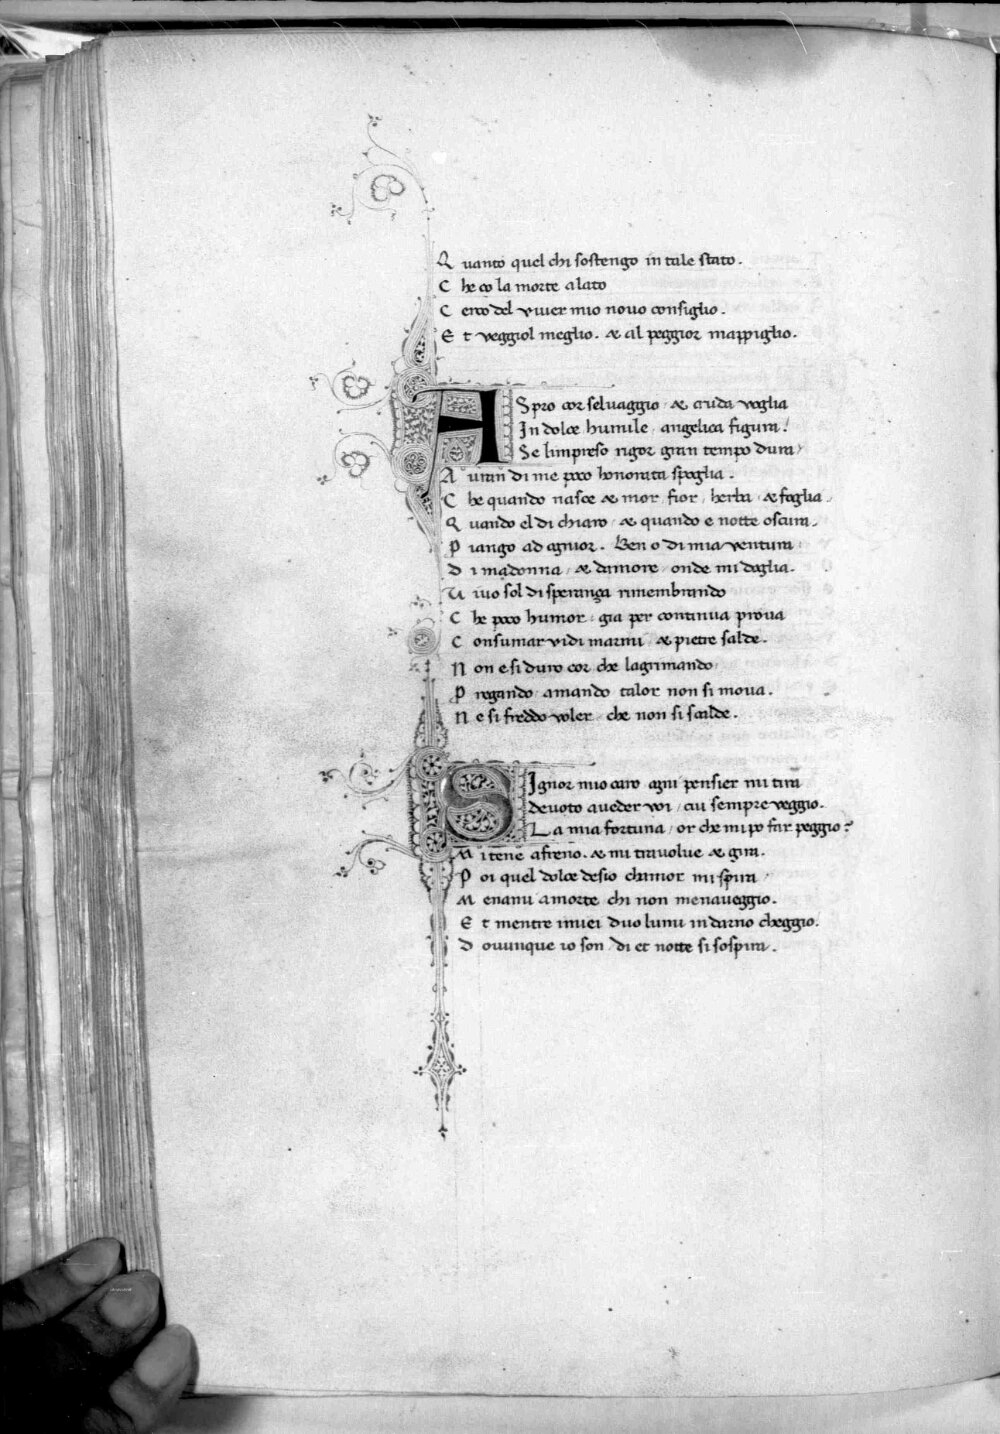 Quanto quel chi sostengo in tale stato.
Che co la morte alato
Cerco del viver mio novo consiglio.
Et veggiol meglio. & al peggior mappiglio.
ASpro cor selvaggio & cruda voglia
In dolce humile angelica figura!
Se limpreso rigor gran tempo dura
Auran di me poco honorata spoglia.
Che quando nasce & mor fior, herba & foglia.
Quando el di chiaro & quando e notte oscura.
Piango ad agnior. Ben o di mia ventura
Di madonna & damore onde mi doglia.
Uivo sol di speranza rimembrando
Che poco humor gia per continua prova
Consumar vidi marmi & pietre salde.
Non e si duro cor che lagrimando
Pregando amando talor non si mova.
Ne si freddo voler che non si scalde.
SIgnor mio caro ogni pensier mi tira
Devoto aveder voi / cui sempre veggio.
La mia fortuna / or che mi po far peggio?
Mi tene afreno. & mi travolve & gira.
Poi quel dolce desio chamor mi spira
Menami amorte chi non menaveggio.
Et mentre imiei duo lumi indarno cheggio.
Dovunque io son / di et notte si sospira.